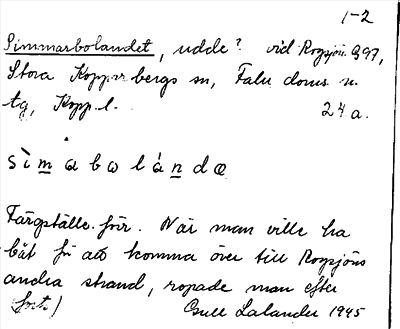 1-2
Simmarbolandet, udde? vid Rogsjön. G 97,
Stora Kopparbergs sn, Falu doms n.
tg, Kopp. l. 24 a.
sìmabolánde
Färgställe förr. När man ville ha
båt för att komma över till Rogsjöns
andra strand, ropade man efter
(forts.) Gull Lalander 1945